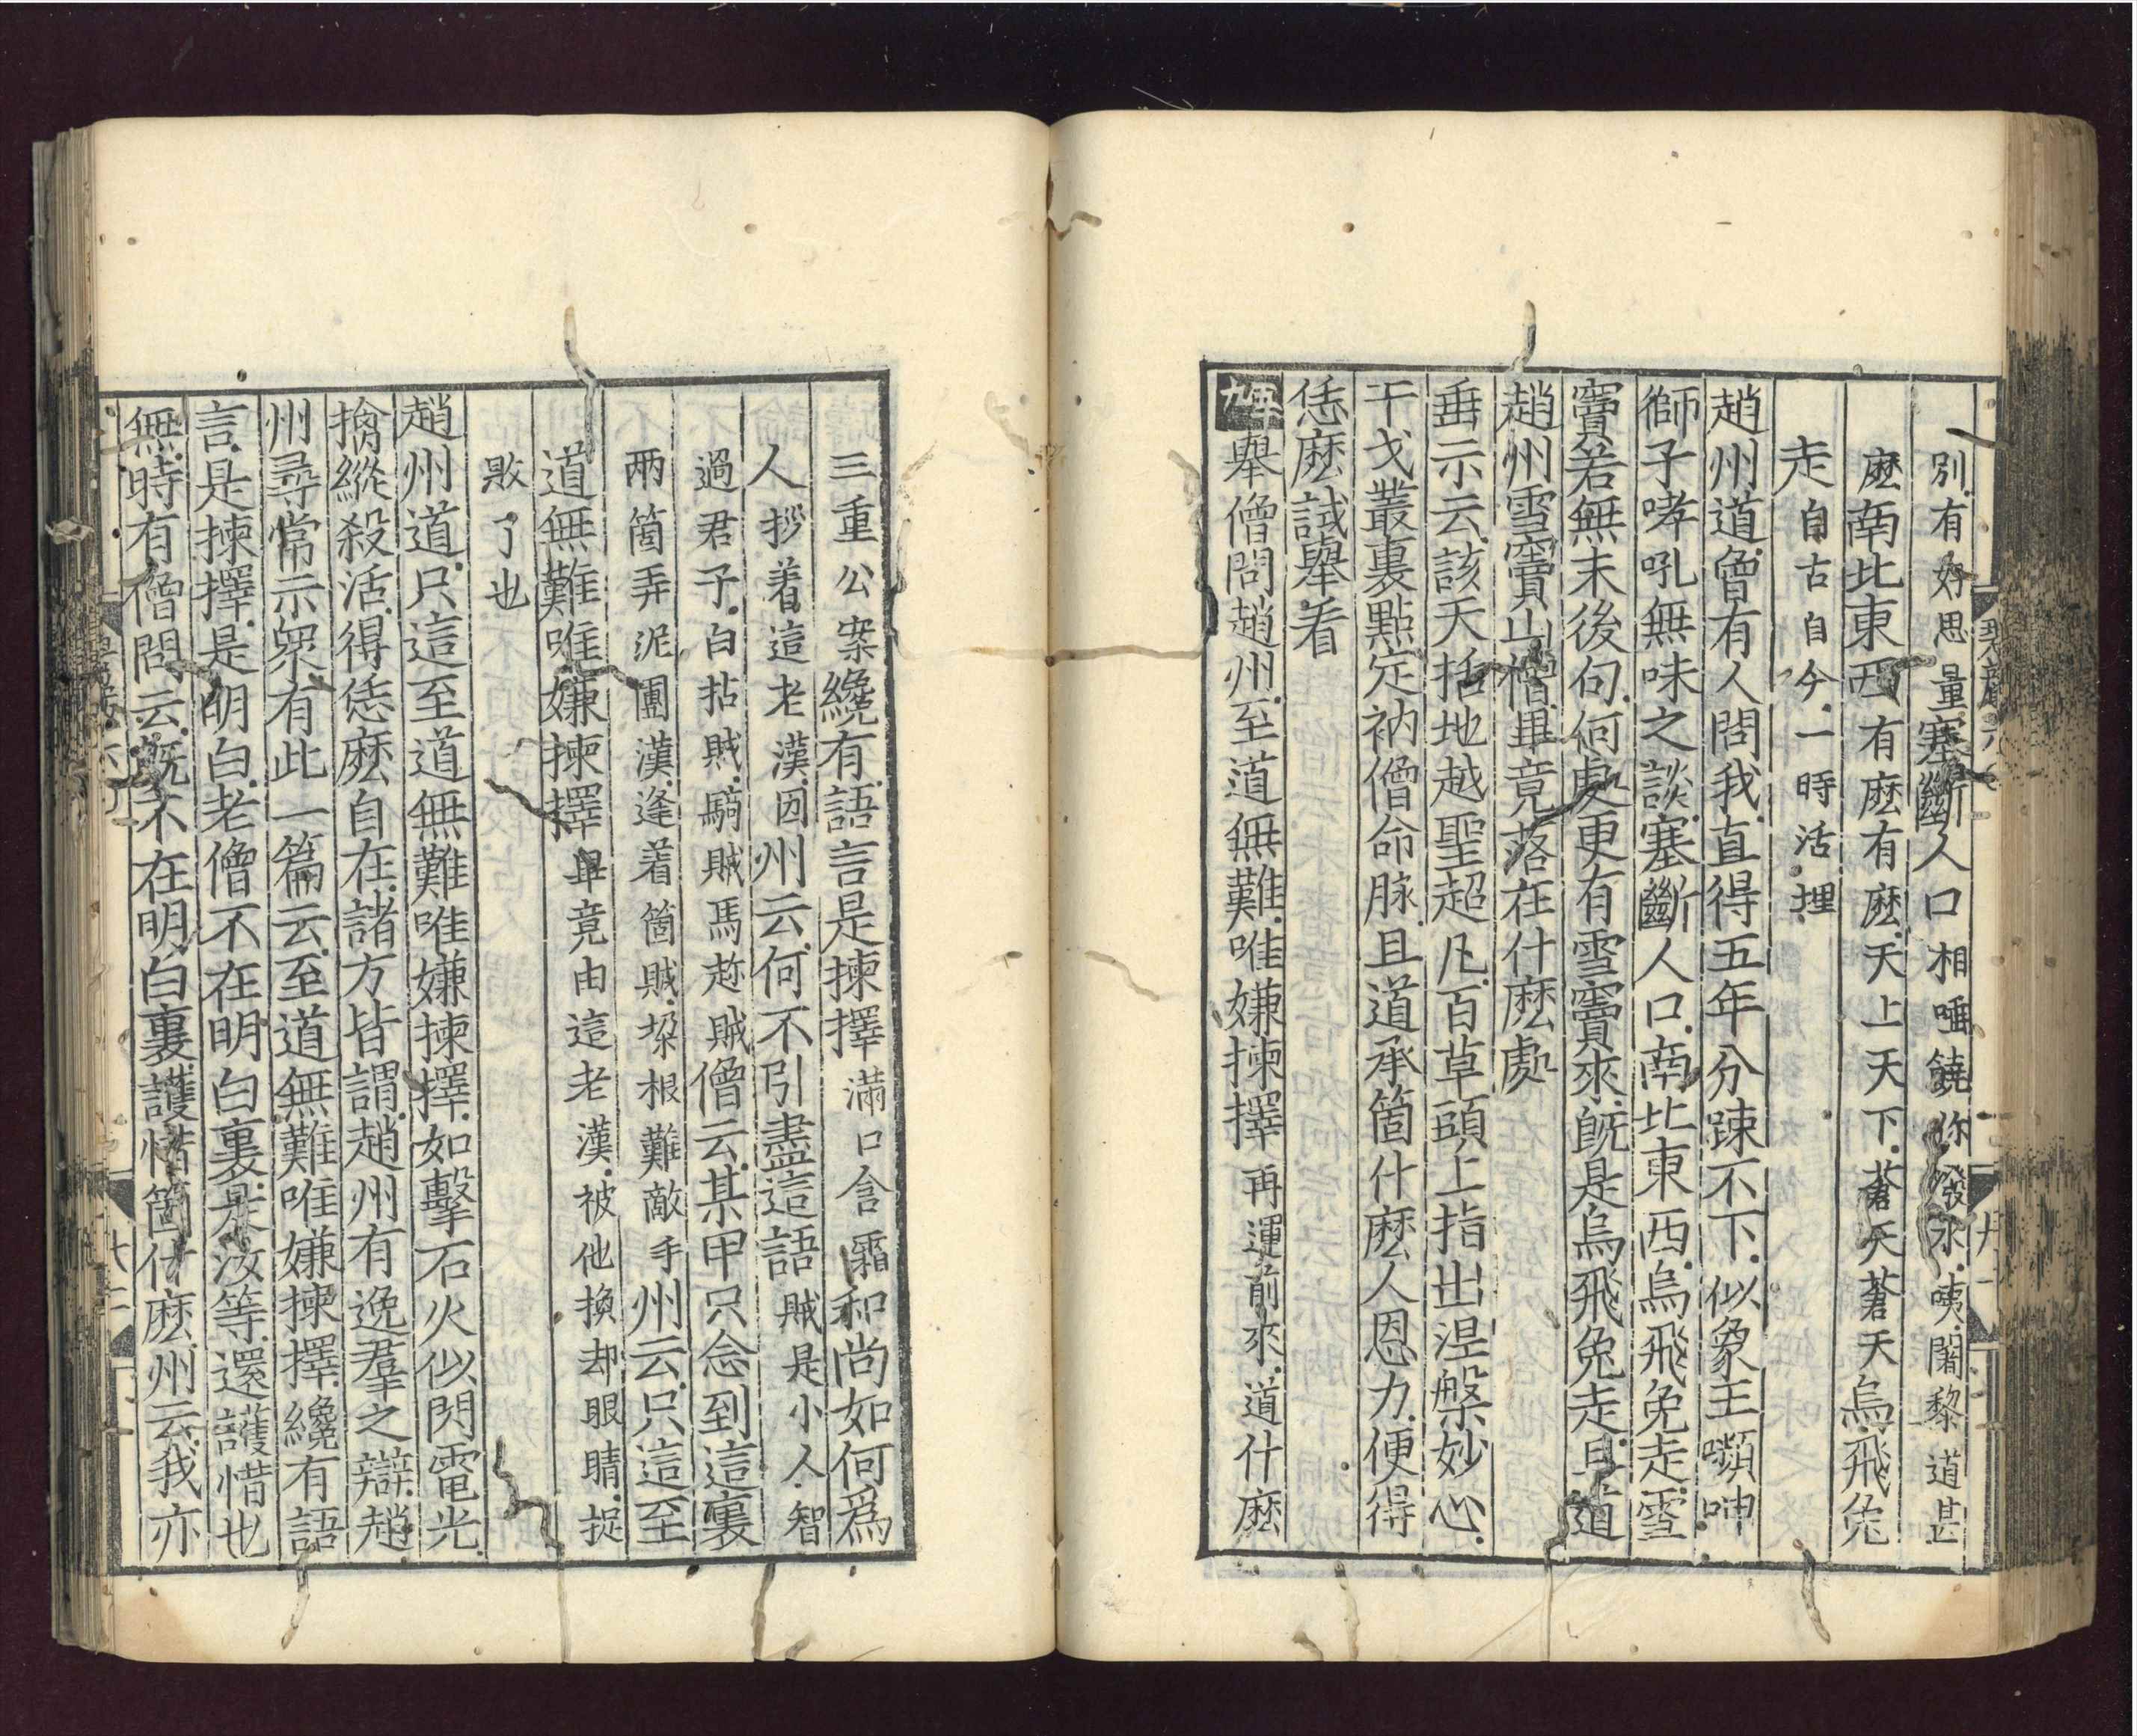 別有好思量塞斷人口相唾饒你潑水咦闍黎道甚
麽南北東西有麽有麽天上天下蒼天蒼天烏飛兔
走自古自今一時活埋
趙州道曾有人問我直得五年分踈不下似象王嚬呻
獅子哮吼無味之談塞斷人口南北東西烏飛兔走雪
竇若無末後句何處更有雪竇來既是烏飛兔走且道
趙州雪竇山僧畢竟落在什麽處
垂示云該天括地越聖超凡百草頭上指出涅槃妙心
干戈叢裏點定衲僧命脉且道承箇什麽人恩力便得
恁麽試舉看
五九舉僧問趙州至道無難唯嫌揀擇再運前來道什麽
三重公案纔有語言是揀擇滿口含霜和尚如何爲
人拶着這老漢㘞州云何不引盡這語賊是小人智
過君子白拈賊騎賊馬趂賊僧云某甲只念到這裏
兩箇弄泥團漢逢着箇賊垜根難敵手州云只這至
道無難唯嫌揀擇畢竟由這老漢被他換却眼睛捉
敗了也
趙州道只這至道無難唯嫌揀擇如擊石火似閃電光
擒縱殺活得恁麽自在諸方皆謂趙州有逸羣之辯趙
州尋常示衆有此一篇云至道無難唯嫌揀擇纔有語
言是揀擇是明白老僧不在明白裏是汝等還護惜也
無時有僧問云既不在明白裏護惜箇什麽州云我亦